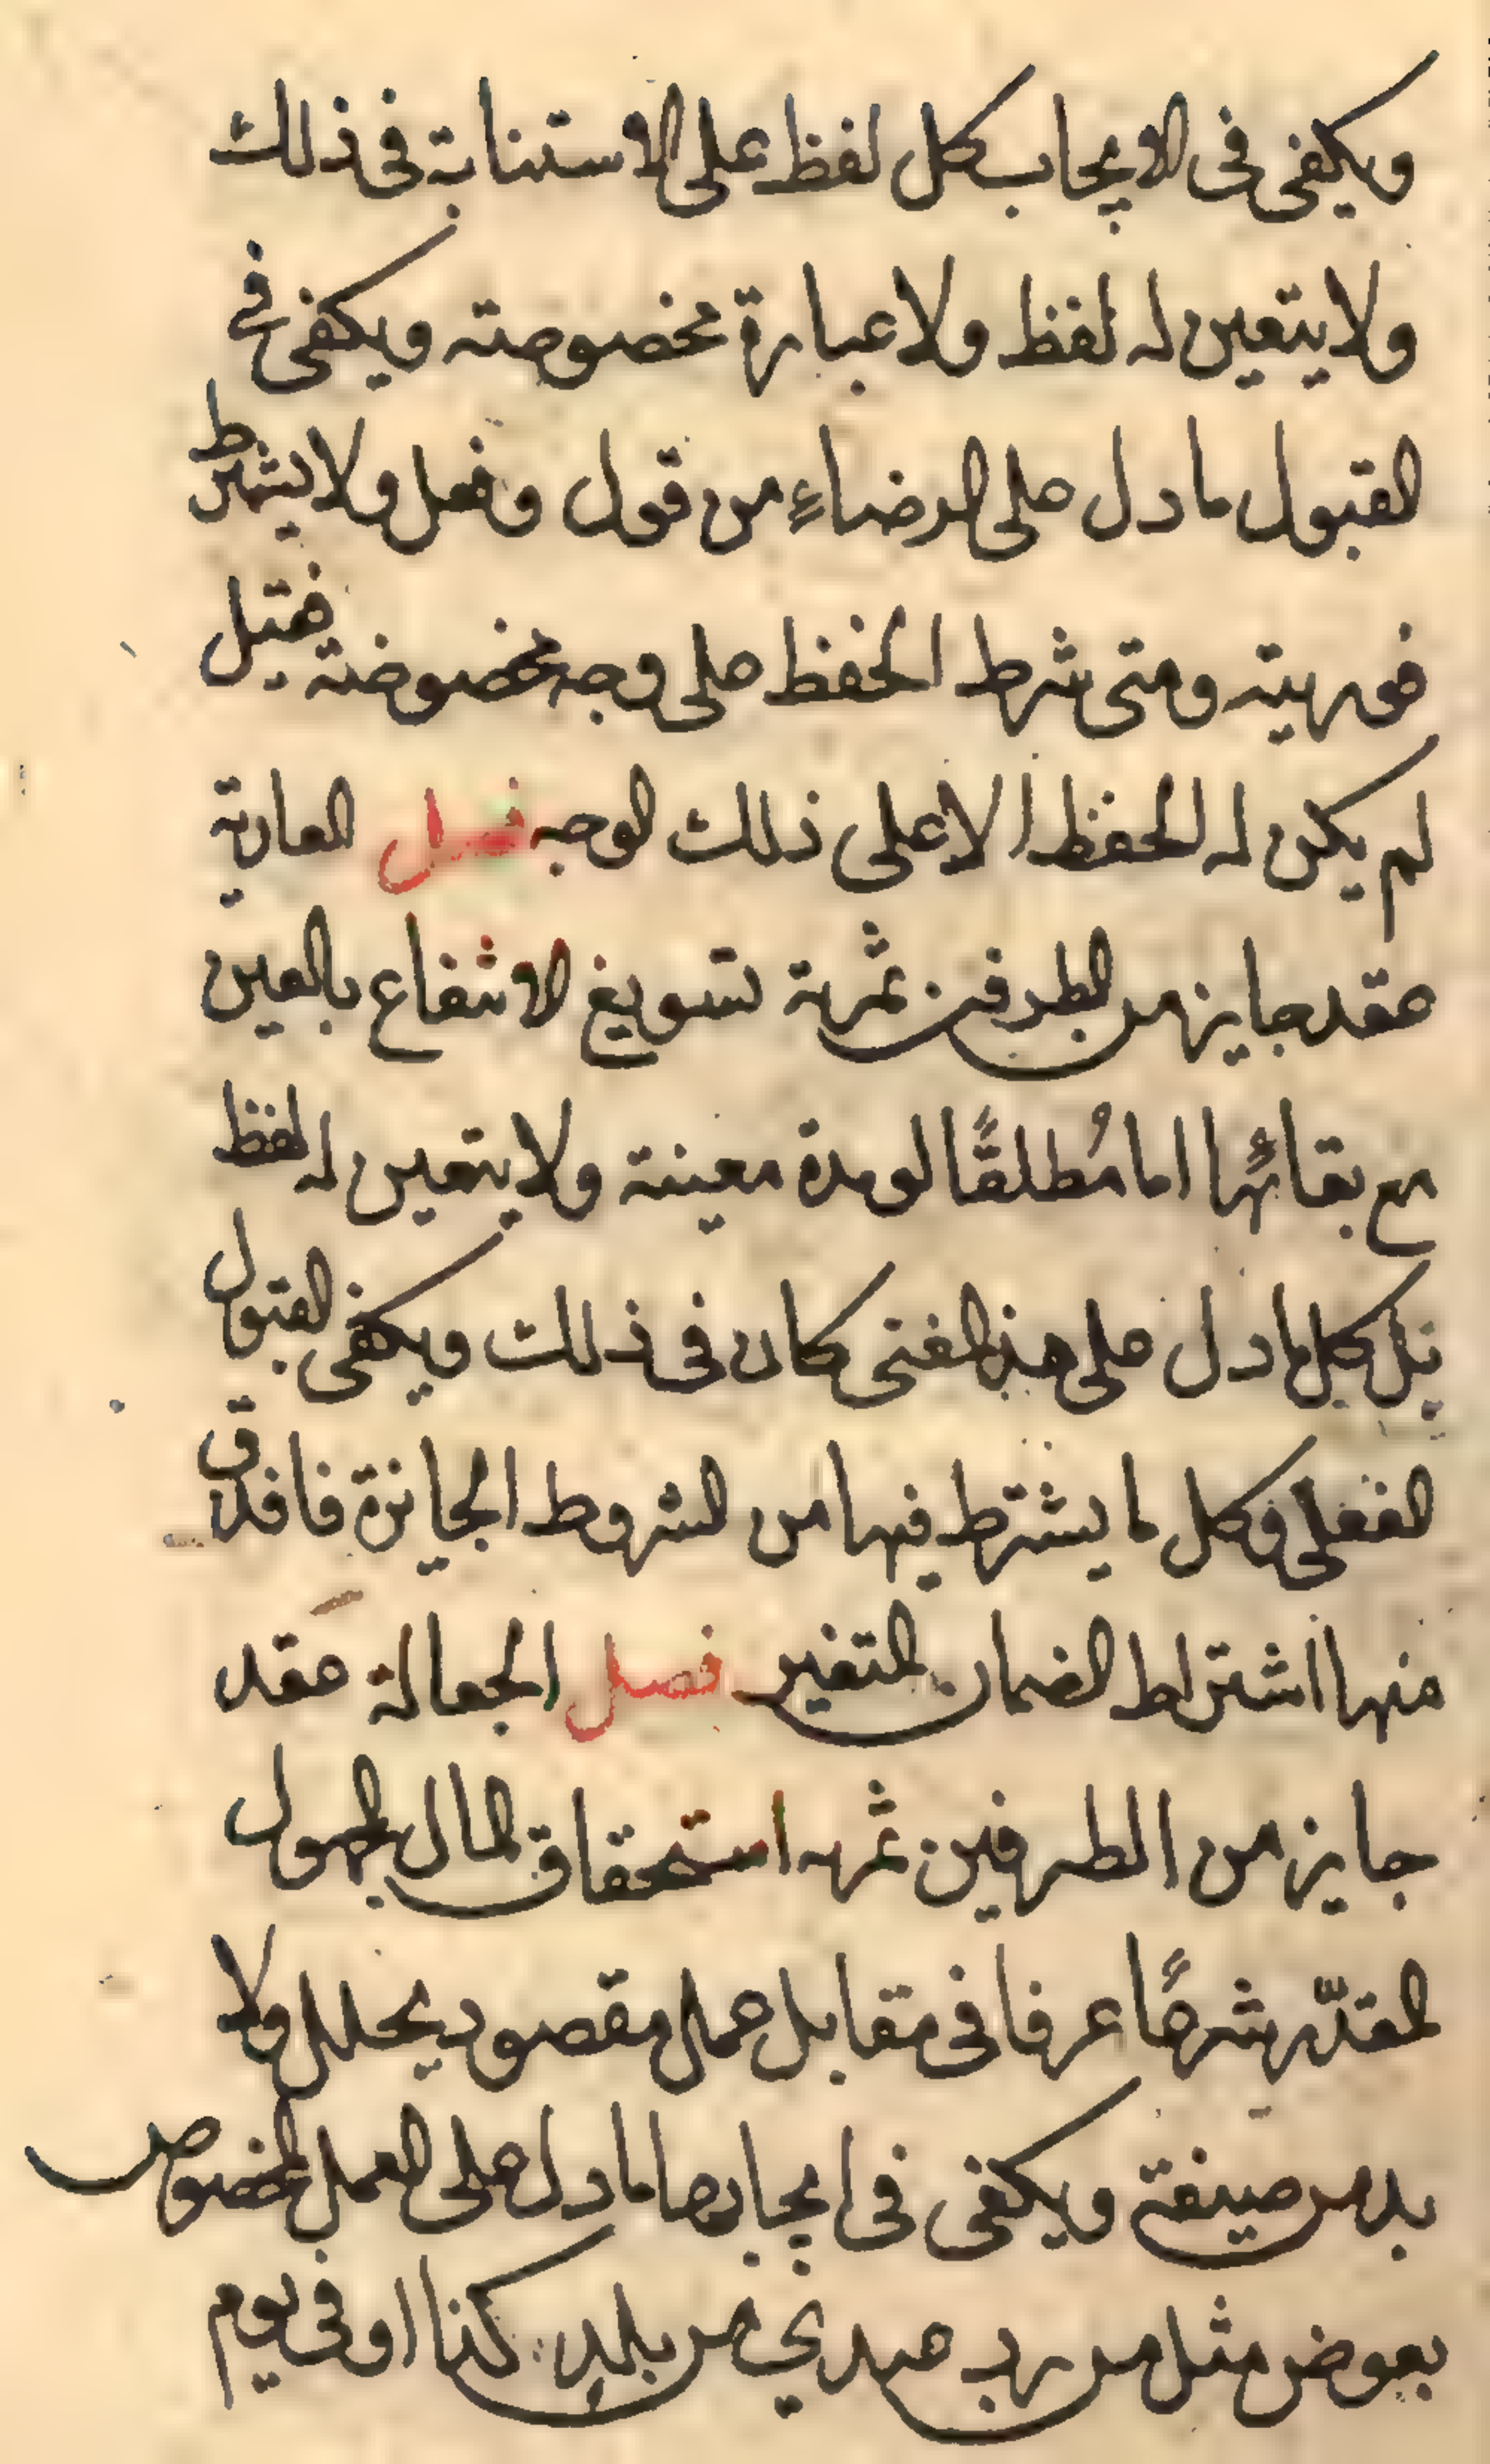 ويكفى فى الايجاب كل لفظ على الاستنابة فى ذلك
ولا يتعين له لفظ ولا عبارة مخصوصته ويكفى فى
القبول مادل على الرضاءِ من قول وفعل ولا يشترط
فوريته ومتى شرط الحفظ على وجه مخصوضة فقبل
لم يكن له الحفظ الا على ذلك الوجه فصل العارية
عقد جايز من الطرفين ثمرة تسويغ الانتفاع بالعين
مع بقائها اما مُطلقًا لو مدة معينة ولا يتعين له لفظ
بل كل مادل على هذ المعنى كان فى ذلك ويكفى القبول
الفعلى وكل ما يشترط فيها من الشروط الجايزة فافذ
منها اشتراط الضمان فصل الجعالة عقد
جايز من الطرفين ثمره استحقاق المال
المقدّر شرعًا عرفا فى مقابل عمل مقصود يحلل ولا
بد من صيغة ويكفى فى ايجابها مادل على العمل المخصوص
بعوض مثل من رد عبدي من بلد كذا او فى يوم